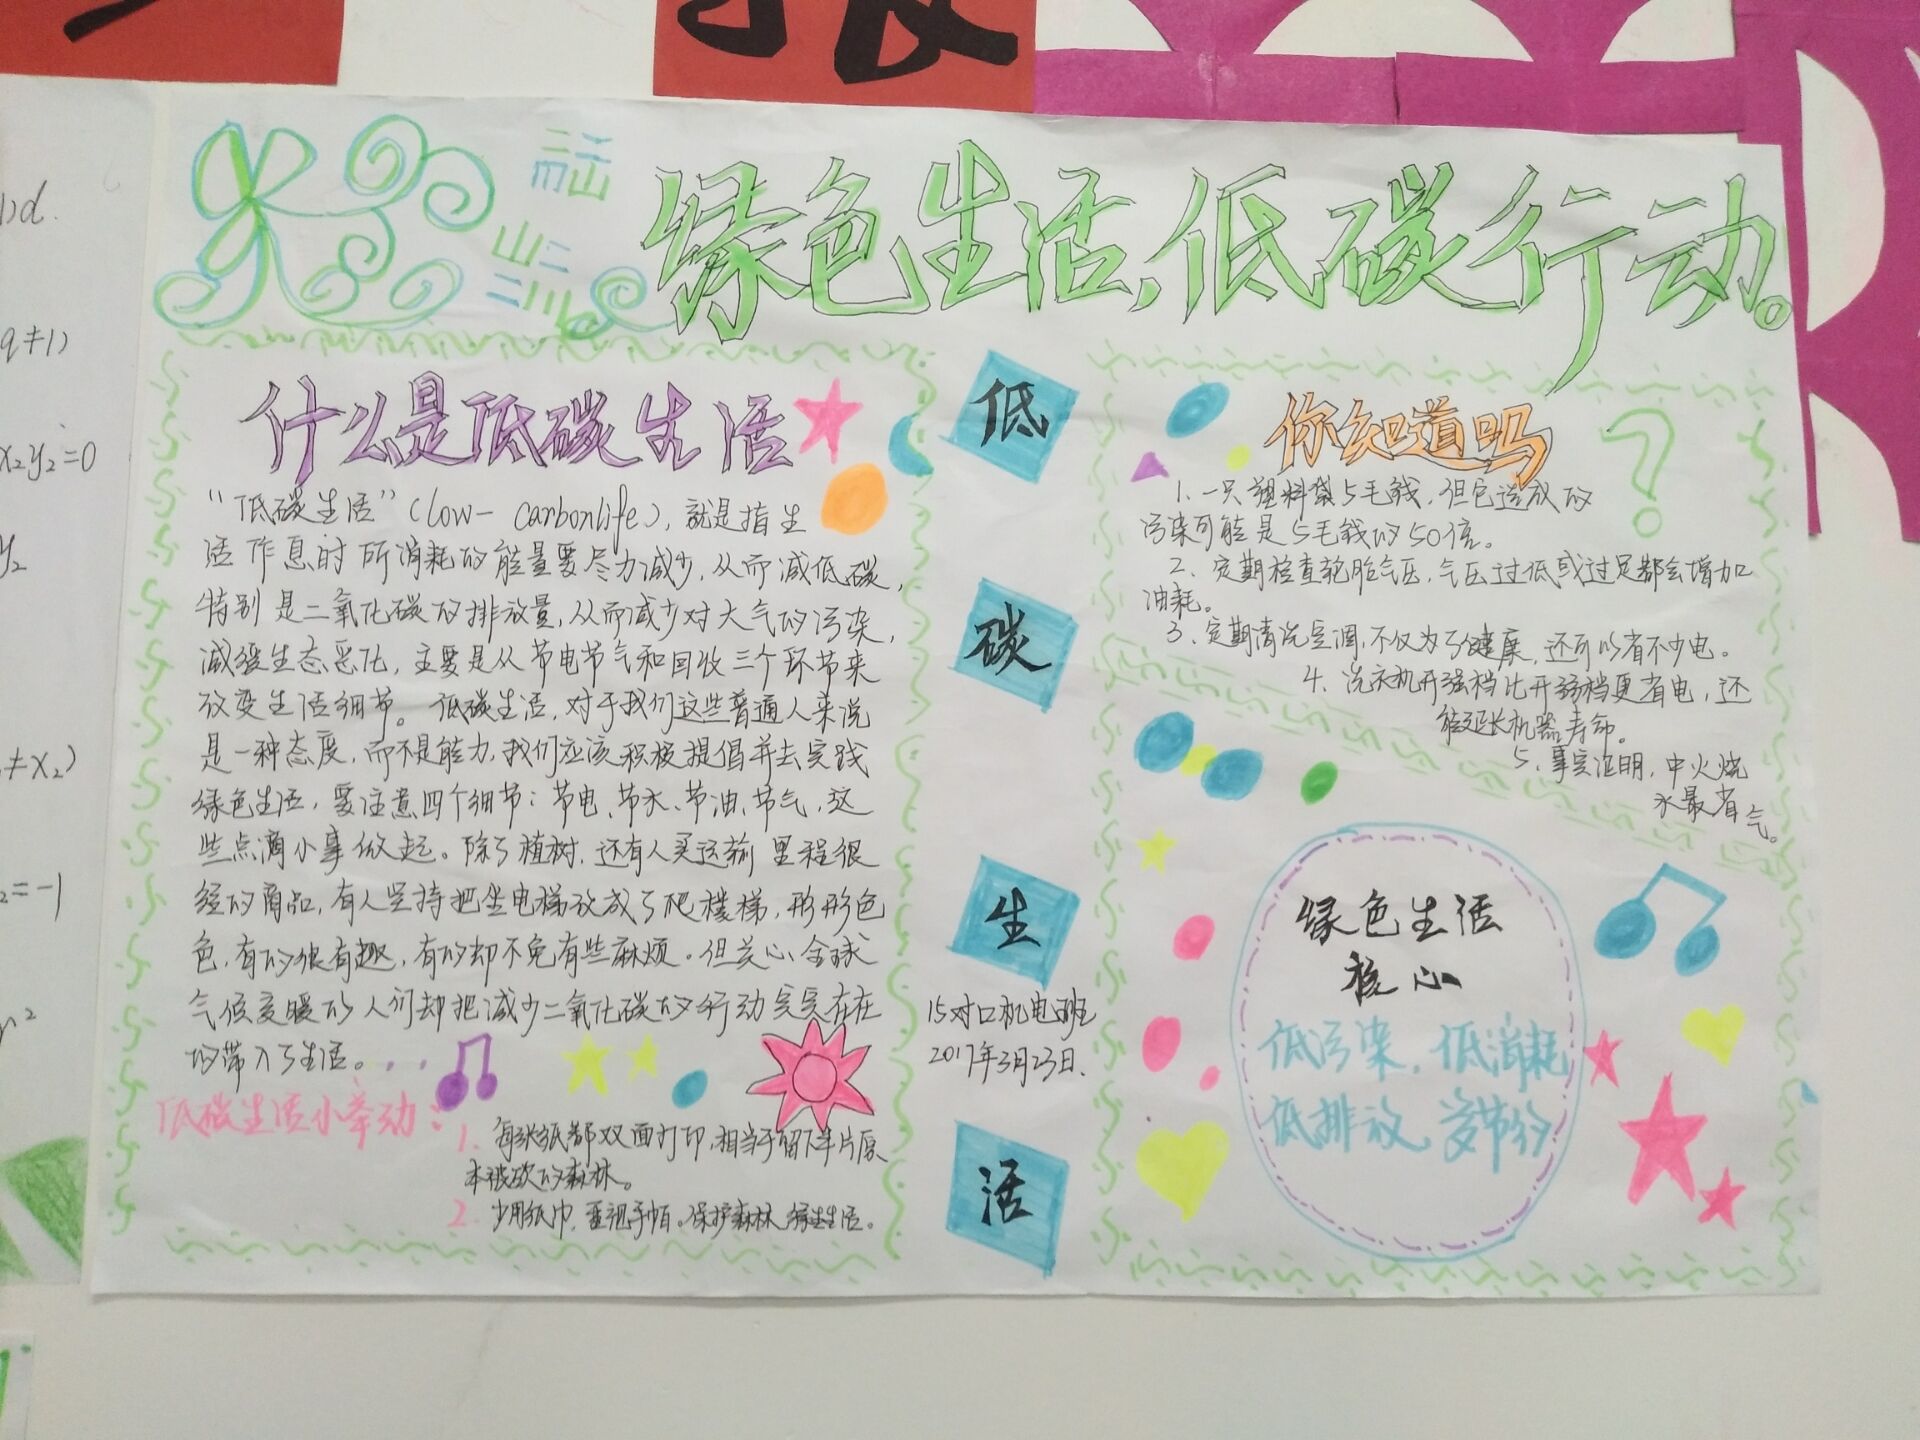 报
绿色生活,低碳行动。
什么是低碳生活
“低碳生活”(low- carbonlife),就是指生
活作息时所消耗的能量要尽力减少,从而减低碳,
特别是二氧化碳的排放量,从而减少对大气的污染,
减缓生态恶化,主要是从节电节气和回收三个环节来
改变生活细节。低碳生活,对于我们这些普通人来说
是一种态度,而不是能力,我们应该积极提倡并去实践
绿色生活,要注意四个细节:节电、节水、节油、节气,这
些点滴小事做起。除了植树,还有人买运输里程很
短的商品,有人坚持把坐电梯改成了爬楼梯,形形色
色,有的很有趣,有的却不免有些麻烦。但关心全球
气候变暖的人们却把减少二氧化碳的行动实实在在
的带入了生活。...
低碳生活小举动:
1. 每张纸都双面打印,相当于留下半片原
本被砍的森林。
2. 少用纸巾,重视手帕。保护森林 绿色生活。
低
碳
生
15对口机电班
2017年3月23日.
活
你知道吗
?
1. 一只塑料袋5毛钱,但它造成的
污染可能是5毛钱的50倍。
2. 定期检查轮胎气压,气压过低或过足都会增加
油耗。
3. 定期清洗空调,不仅为了健康,还可以省不少电。
4. 洗衣机开强档比开弱档更省电,还
能延长机器寿命。
5. 事实证明,中火烧
水最省气。
绿色生活
核心
低污染,低消耗
低排放,多节约
1)d.
q≠1)
x₂y₂=0
y₂
≠x₂)
₂=-1